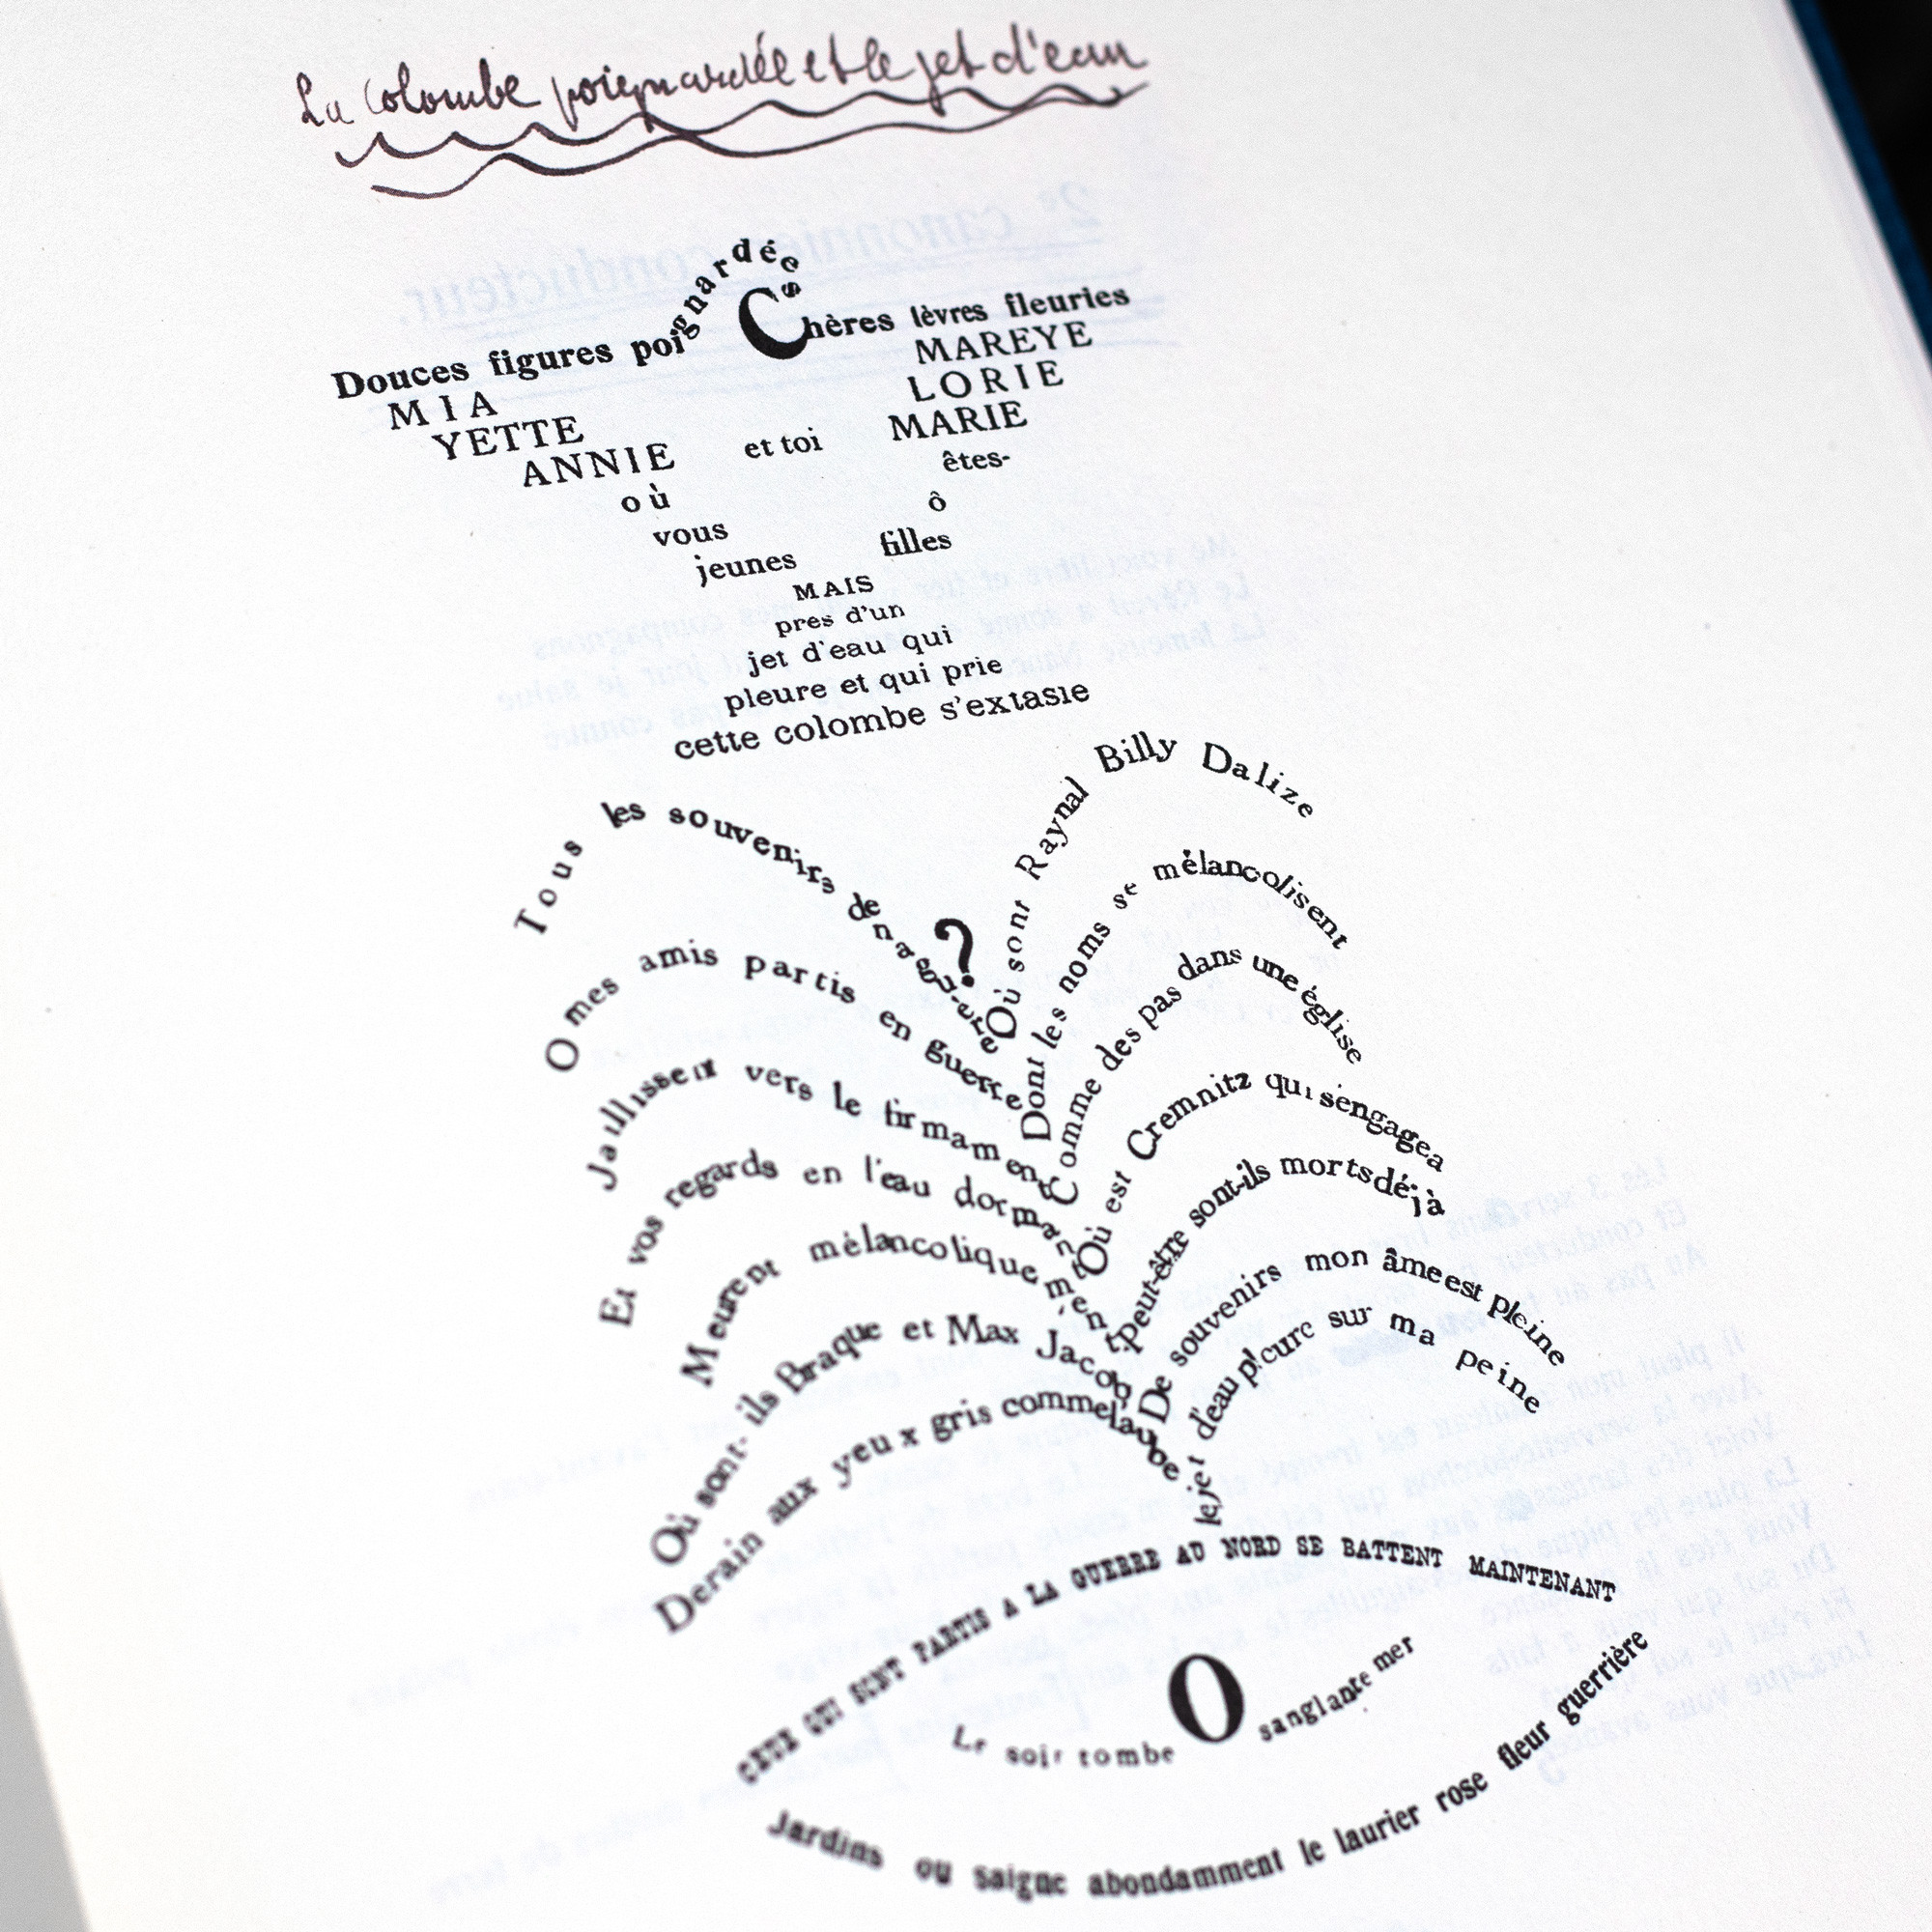 La Colombe poignardée et le jet d'eau
Douces figures poignardées Chères lèvres fleuries
MIA MAREYE
YETTE LORIE
ANNIE et toi MARIE
où êtes-
vous ô
jeunes filles
MAIS
pres d'un
jet d'eau qui
pleure et qui prie
cette colombe s'extasie
Tous les souvenirs de naguère
O mes amis partis en guerre
Jaillissent vers le firmament
Et vos regards en l'eau dormant
Meurent mélancoliquement
Où sont-ils Braque et Max Jacob
Derain aux yeux gris comme l'aube
?
Où sont Raynal Billy Dalize
Dont les noms se mélancolisent
Comme des pas dans une église
Où est Cremnitz qui s'engagea
Peut-être sont-ils morts déjà
De souvenirs mon âme est pleine
le jet d'eau pleure sur ma peine
CEUX QUI SONT PARTIS A LA GUERRE AU NORD SE BATTENT MAINTENANT
Le soir tombe O sanglante mer
Jardins ou saigne abondamment le laurier rose fleur guerrière
2e canonnier conducteur.